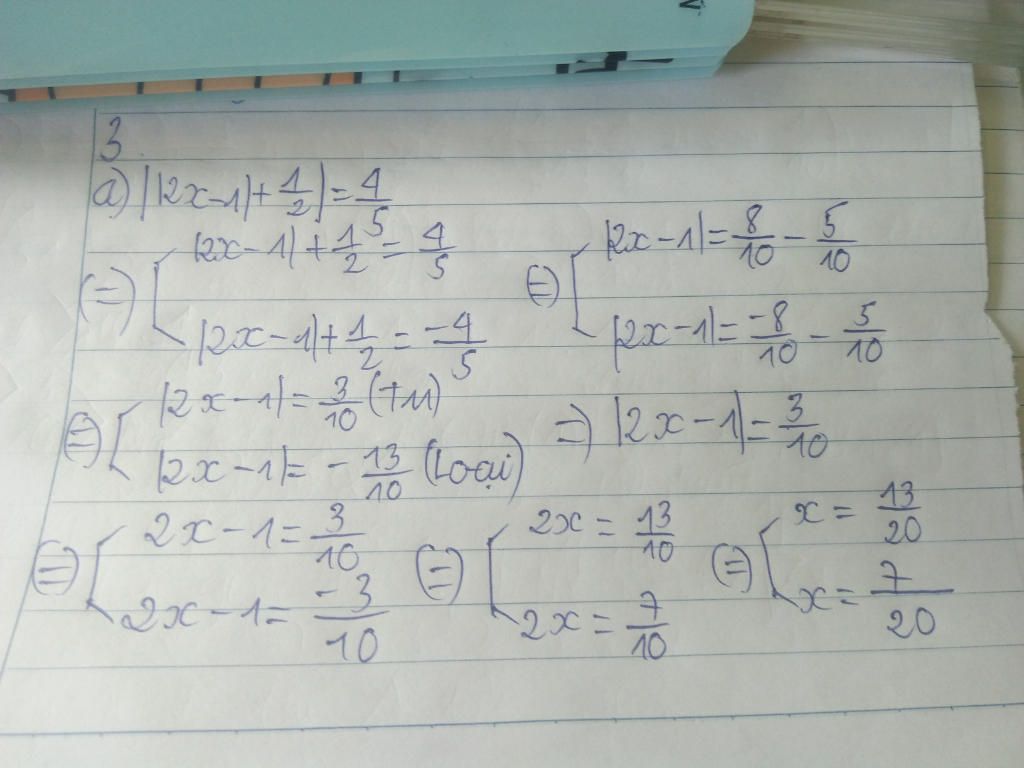 3
a) ||2x-1|+1/2|=4/5
(=) [ |2x-1|+1/2=4/5
|2x-1|+1/2=-4/5
(=) [ |2x-1|=8/10-5/10
|2x-1|=-8/10-5/10
(=) [ |2x-1|=3/10 (TM)
|2x-1|=-13/10 (Loại)
=) |2x-1|=3/10
(=) [ 2x-1=3/10
2x-1=-3/10
(=) [ 2x=13/10
2x=7/10
(=) [ x=13/20
x=7/20